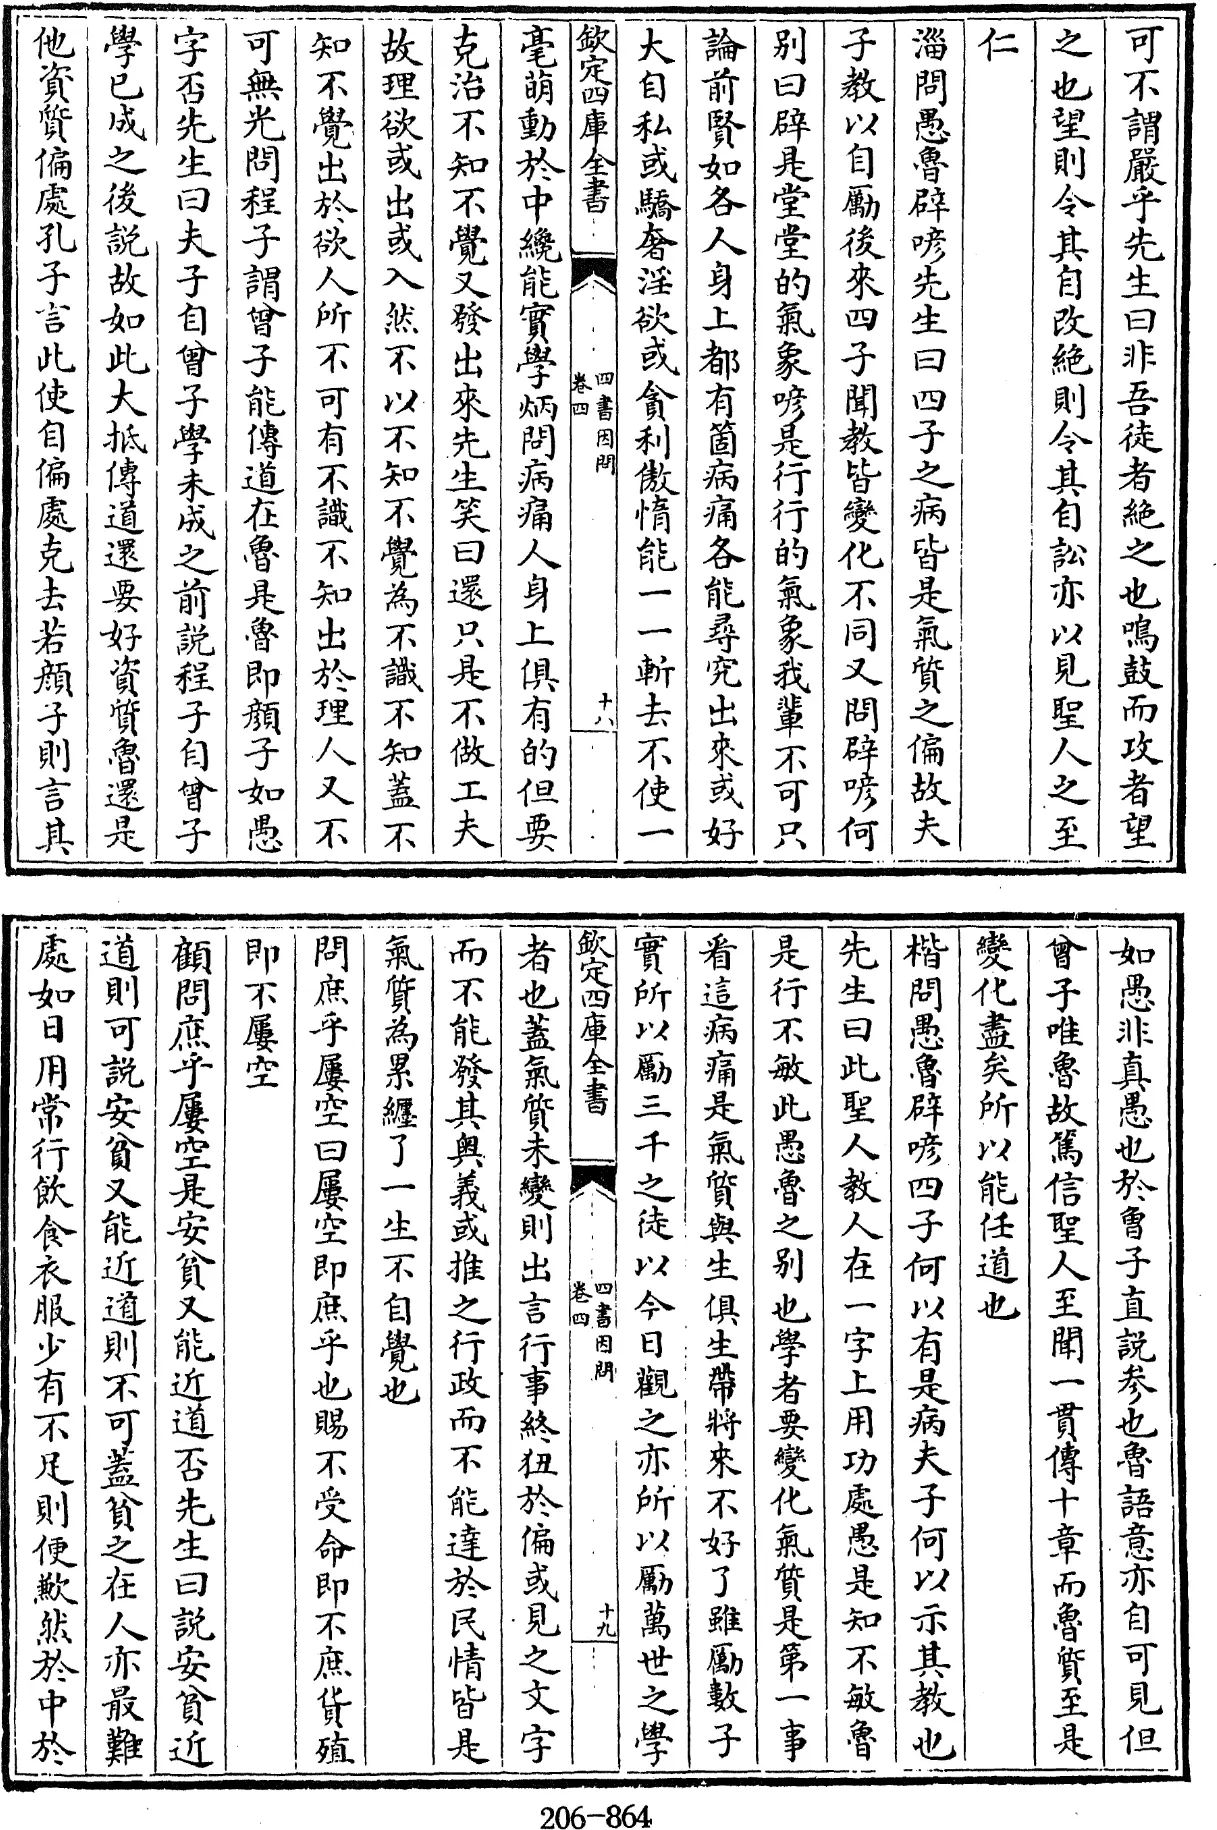 可不謂嚴乎先生曰非吾徒者絶之也鳴鼓而攻者望
之也望則令其自改絶則令其自訟亦以見聖人之至
仁
淄問愚魯辟喭先生曰四子之病皆是氣質之偏故夫
子教以自勵後來四子聞教皆變化不同又問辟喭何
别曰辟是堂堂的氣象喭是行行的氣象我輩不可只
論前賢如各人身上都有箇病痛各能尋究出來或好
大自私或驕奢淫欲或貪利傲惰能一一斬去不使一
欽定四庫全書
四書因問
卷四
十八
毫萌動於中纔能實學炳問病痛人身上俱有的但要
克治不知不覺又發出來先生笑曰還只是不做工夫
故理欲或出或入然不以不知不覺為不識不知蓋不
知不覺出於欲人所不可有不識不知出於理人又不
可無光問程子謂曾子能傳道在魯是魯即顔子如愚
字否先生曰夫子自曾子學未成之前説程子自曾子
學已成之後説故如此大抵傳道還要好資質魯還是
他資質偏處孔子言此使自偏處克去若顔子則言其
如愚非真愚也於曾子直説參也魯語意亦自可見但
曾子唯魯故篤信聖人至聞一貫傳十章而魯質至是
變化盡矣所以能任道也
楷問愚魯辟喭四子何以有是病夫子何以示其教也
先生曰此聖人教人在一字上用功處愚是知不敏魯
是行不敏此愚魯之别也學者要變化氣質是第一事
看這病痛是氣質與生俱生帶將來不好了雖勵數子
實所以勵三千之徒以今日觀之亦所以勵萬世之學
欽定四庫全書
四書因問
卷四
十九
者也蓋氣質未變則出言行事終狃於偏或見之文字
而不能發其奥義或推之行政而不能達於民情皆是
氣質為累纏了一生不自覺也
問庶乎屢空曰屢空即庶乎也賜不受命即不庶貨殖
即不屢空
顧問庶乎屢空是安貧又能近道否先生曰説安貧近
道則可説安貧又能近道則不可蓋貧之在人亦最難
處如日用常行飲食衣服少有不足則便歉然於中於
206-864